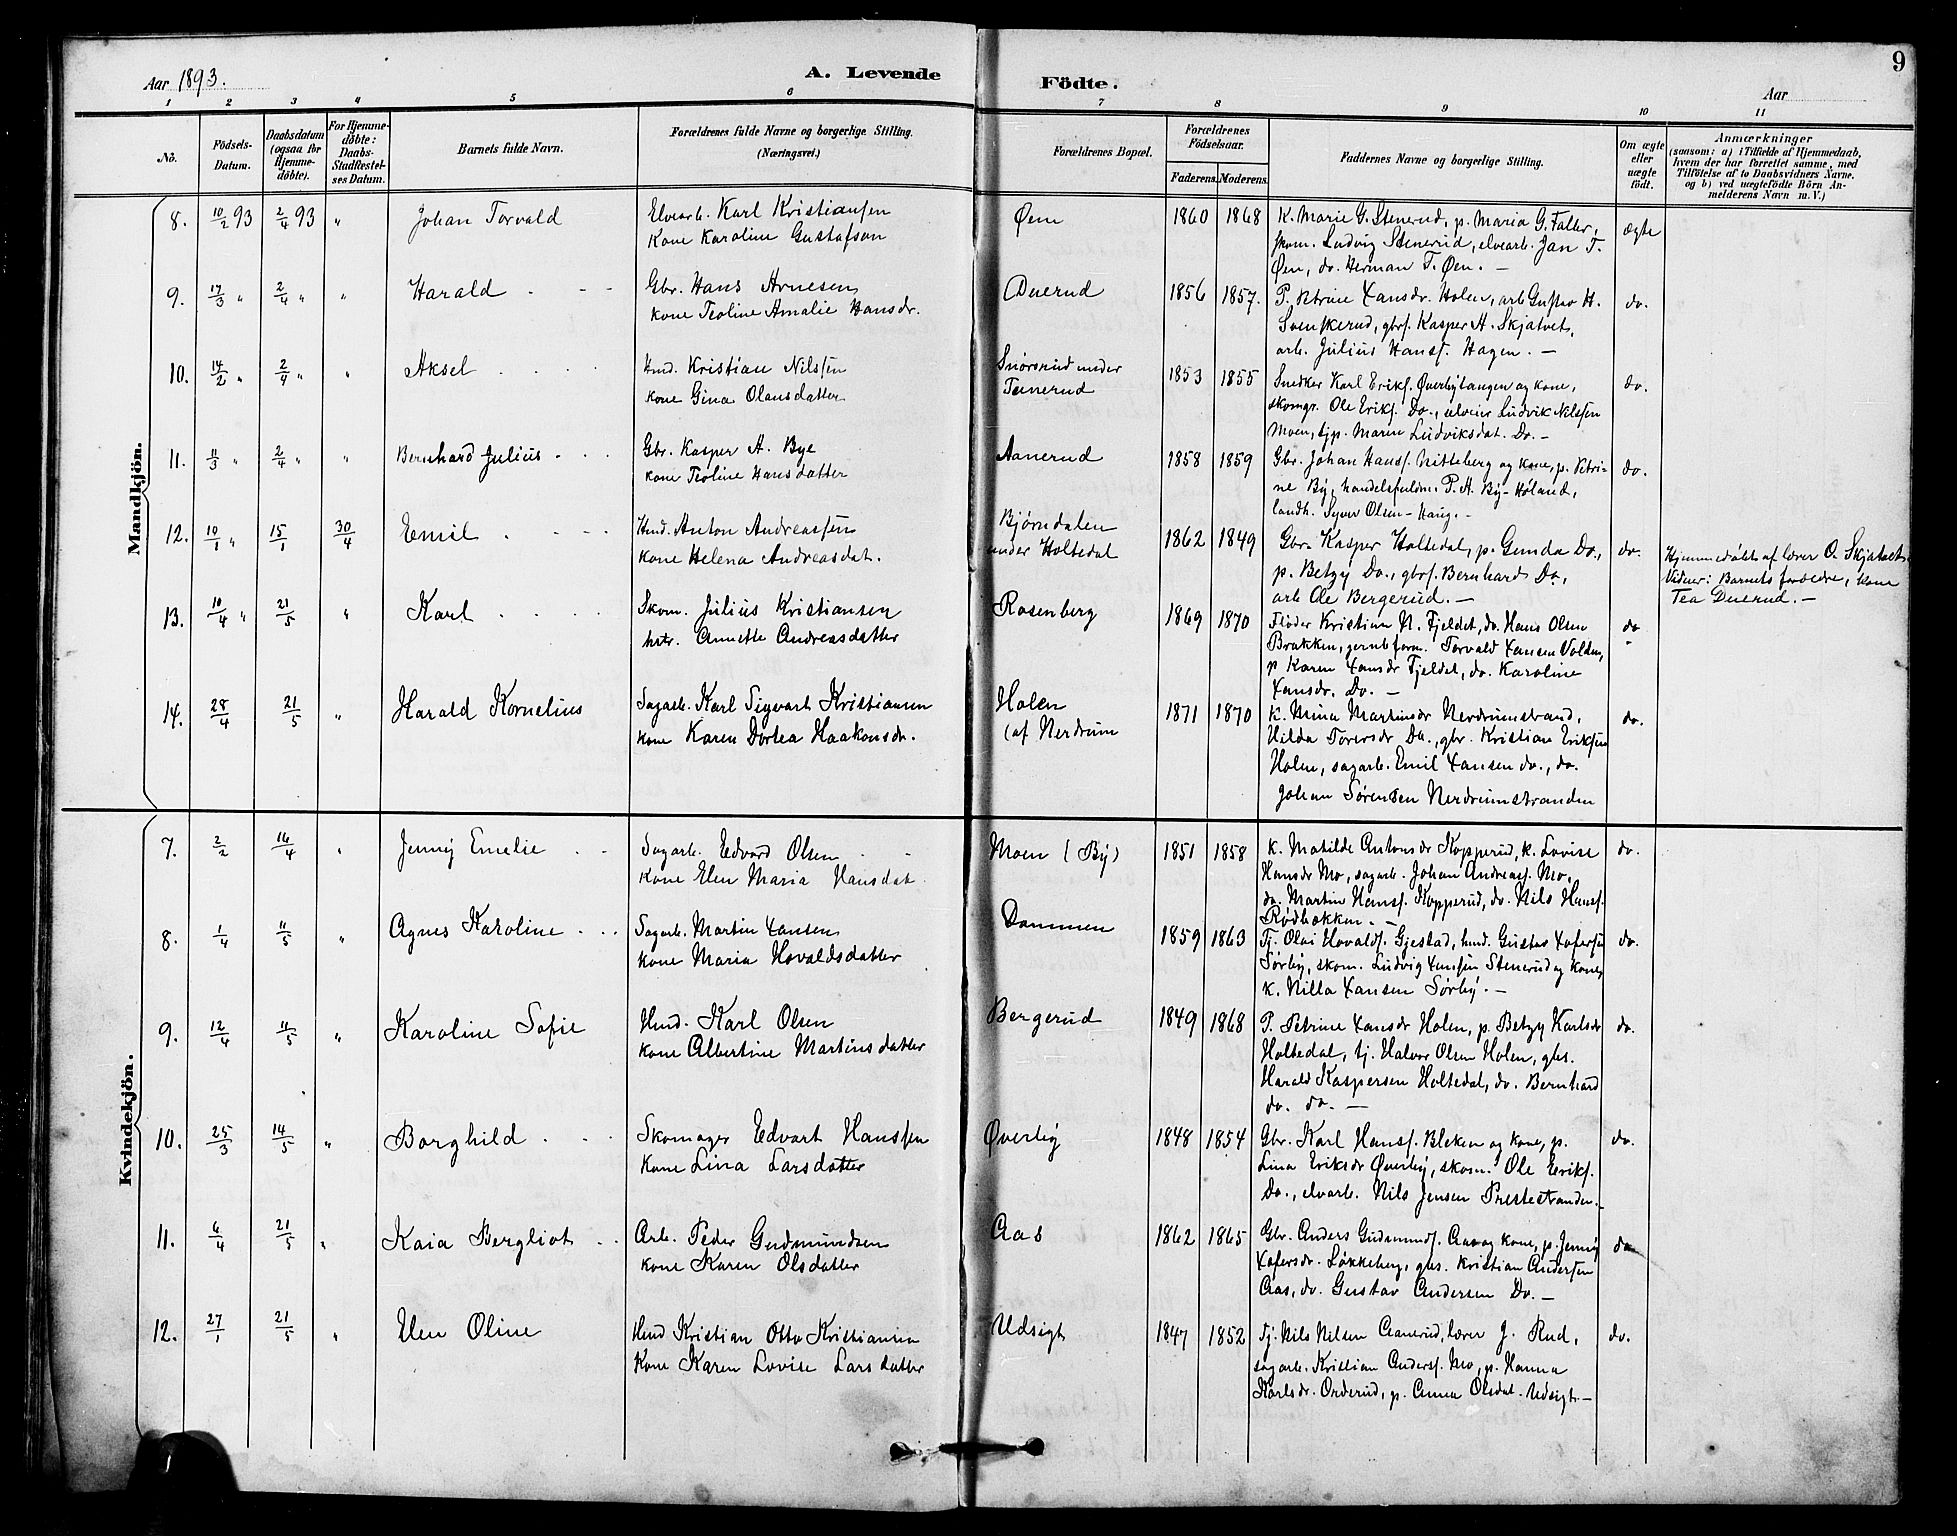 9
Aar 1893.
A. Levende Födte.
Aar
1 2 3 4 5 6 7 8 9 10 11
Nö.
Födsels-Datum.
Daabsdatum (ogsaa for Hjemme-döbte).
For Hjemme-döbte: Daabs-Stadfæstel-ses Datum.
Barnets fulde Navn.
Forældrenes fulde Navne og borgerlige Stilling.
(Næringsvei.)
Forældrenes Bopæl.
Forældrenes Födselsaar.
Faderens. Moderens.
Faddernes Navne og borgerlige Stilling.
Om ægte eller uægte födt.
Anmærkninger
(saasom: a) i Tilfælde af Hjemmedaab,
hvem der har forrettet samme, med
Tilföielse af to Daabsvidners Navne.
og b) ved uægtefödte Börn An-
melderens Navn m. V.)
Mandkjön.
8. 10/2 93 2/4 93 " Johan Torvald
Elvearb. Karl Kristiansen
Kone Karoline Gustafson
Øen 1860 1868
K. Marie G. Stenerud, p. Maria G. Faller,
skom. Ludvig Stenerud, elvearb. Jan T.
Øen, do. Herman T. Øen. —
ægte
9. 17/3 " 2/4 " " Harald
Gbr. Hans Arnesen
kone Teoline Amalie Hansdr.
Duerud 1856 1857.
P. Petrine Jansdr. Holen, arb Gustav H.
Svenskerud, gbrs. Kasper A. Skjatvet,
arb. Julius Hanss. Hagen. —
do.
10. 14/2 " 2/4 " " Aksel
Hmd. Kristian Nilssen
kone Gina Olausdatter
Snorsrud under
Tunerud 1853 1855
Snedker Karl Eriks. Øverbytangen og kone,
skomgr. Ole Eriks. Do., selveier Ludvik Nilssen
Moen, tjp. Maren Ludviksdat. Do. —
do.
11. 11/3 " 2/4 " " Bernhard Julius
Gbr. Kasper A. Bye
kone Teoline Hansdatter
Aanerud 1858 1859
Gbr. Johan Hanss. Nitteberg og kone, p. Petri-
ne By, handelsfuldm. P. A. By - Høland,
landh. Syver Olsen - Haug. —
do.
12. 10/1 " 15/1 30/4 Emil
Hmd. Anton Andreassen
kone Helena Andreasdat.
Bjørndalen
under Holtedal 1862 1849
Gbr. Kasper Holtedal, p. Gunda Do.,
p. Betzy Do., gbrs. Bernhard Do,
arb Ole Bergerud. —
do.
Hjemmedøbt af lærer O. Skjatvet.
Vidner: Barnets forældre, kone
Tea Duerud. —
13. 10/4 " 21/5 " Karl
Skom. Julius Kristiansen
hstr. Annette Andreasdatter
Rosenberg 1869 1870
Fløder Kristian N. Fjeldet, do. Hans Olsen
Brakken, Torvald Jansen Volden,
p Karen Jansdr Fjeldet, do. Karoline
Jansdr. Do. —
do
14. 28/4 21/5 " Harald Kornelius
Sagarb. Karl Sigvart Kristiansen
kone Karen Dortea Haakonsdr.
Holen
(af Nerdrum 1871 1870
K. Mina Martinsdr Nerdrumstrand,
Hilda Toversdr Do., gbr. Kristian Eriksen
Holen, sagarb. Emil Jansen do., do.
Johan Sørensen Nerdrumstranden
do.
Kvindekjön.
7. 2/2 16/4 " Jenny Emelie
Sagarb. Edvard Olsen
kone Elen Maria Hansdat.
Moen (By) 1851 1858
K. Matilde Antonsdr Kopperud, k. Lovise
Hansdr Mo, sagarb. Johan Andreass. Mo,
do. Martin Hanss. Kopperud, do. Nils Hanss.
Rødbækken. —
do.
8. 1/4 11/5 " Agnes Karoline
Sagarb. Martin Jansen
kone Maria Hovaldsdatter
Dammen 1859 1863
Tj. Olai Hovalds. Gjestad, hmd. Gustav
Sørby, skom. Ludvig Jansen Stenerud og kone,
k. Nilla Jansen Sørby. —
do.
9. 12/4 11/5 " Karoline Sofie
Hmd. Karl Olsen
kone Albertine Martinsdatter
Bergerud 1849 1868
P. Petrine Jansdr Holen, p. Betzy Karlsdr
Holtedal, tj. Halvor Olsen Holen, gbs.
Harald Kaspersen Holtedal, do. Bernhard
do. do. —
do.
10. 25/3 14/5 " Borghild
Skomager Edvart Hanssen
kone Lina Larsdatter
Øverby 1848 1854
Gbr. Karl Hanss. Bleken og kone, p.
Lina Eriksdr Øverby, skom. Ole Eriks.
Do., elvarb. Nils Jensen Prestestranden. —
do.
11. 6/4 21/5 " Kaia Bergliot
Arb. Peder Gudmundsen
kone Karen Olsdatter
Aas 1862 1865
Gbr. Anders Gudmunds. Aas og kone, p. Jenny
Løkkeberg, gbs. Kristian Andersen
Aas, do. Gustav Andersen Do. —
do
12. 27/1 21/5 " Elen Oline
Hmd Kristian Otto Kristiansen
kone Karen Lovise Larsdatter
Udsigt 1847 1852
Tj. Nils Nilsen Aanerud, lærer J. Rud,
sagarb. Kristian Anderss. Mo, p. Hanna
Karlsdr. Orderud, p. Anna Olsdat. Udsigt —
do.